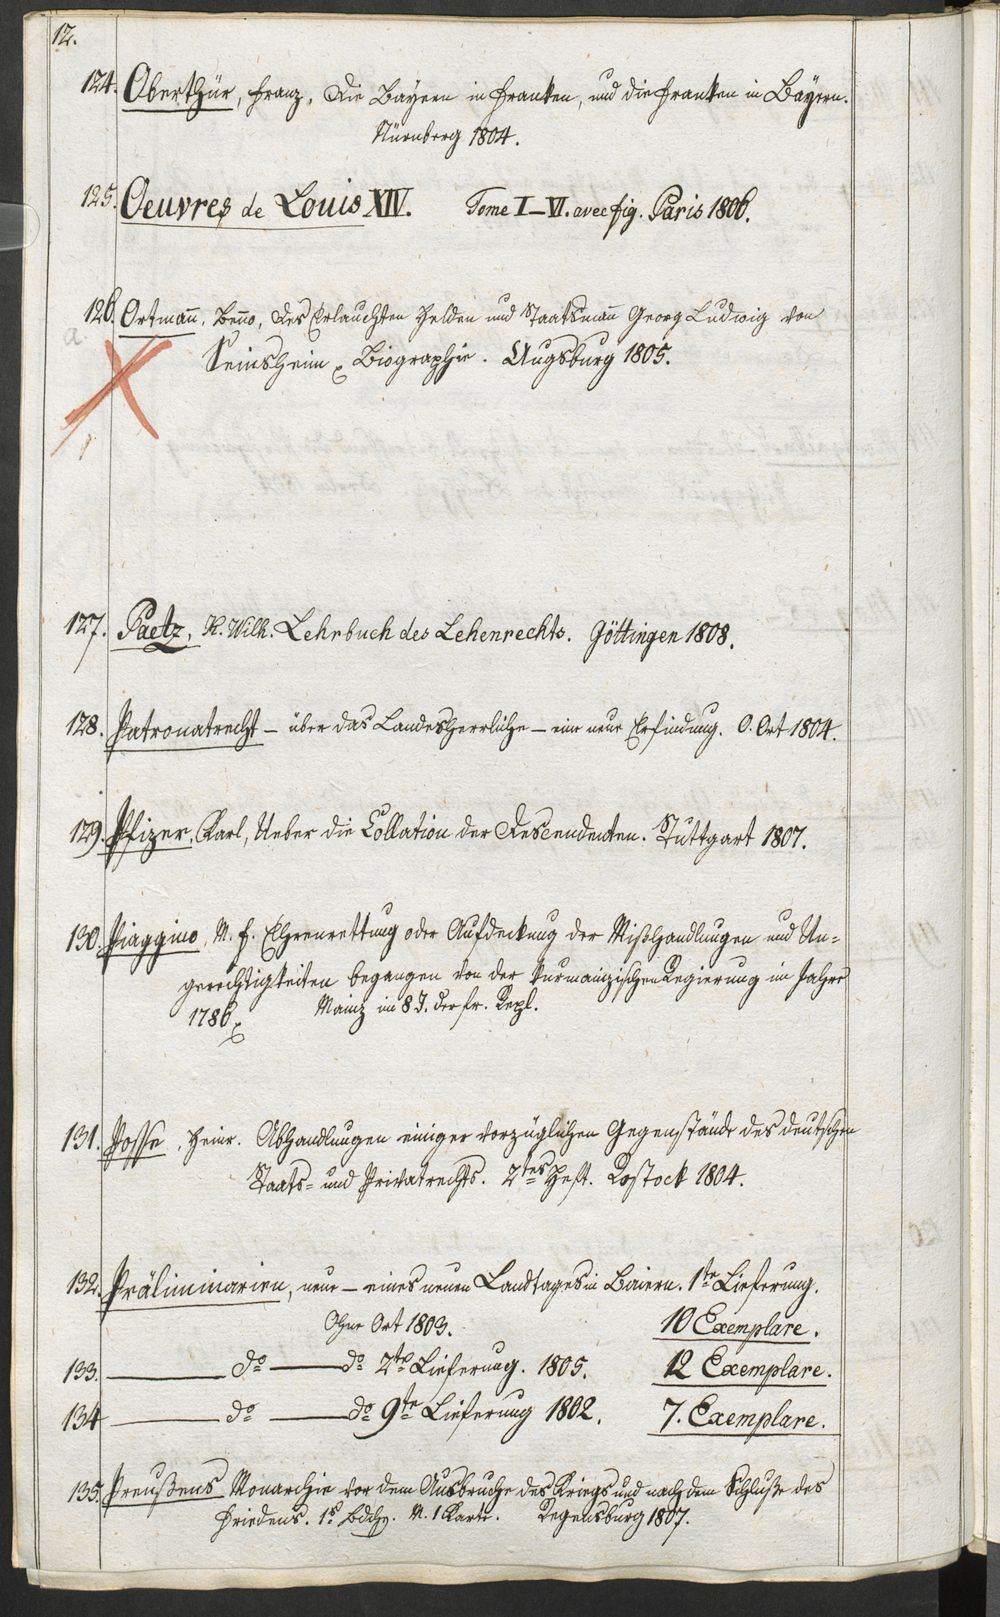 12.
124. Oberthür, Franz, Die Bayern in Franken, und die Franken in Bayern.
Nürnberg 1804.
125. Oeuvres de Louis XIV. Tome I–VI. avec fig. Paris 1806.
126. Ortmañ, Beño, Des Erlauchten Helden und Staatsmañ Georg Ludwig von
Seinsheim Biographie. Augsburg 1805.
127. Paetz, K. Wilh. Lehrbuch des Lehenrechts. Göttingen 1808.
128. Patronatrecht – über das Landesherrliche – eine neue Erfindung. O. Ort 1804.
129. Pfizer, Karl, Ueber die Collation der Descendenten. Stuttgart 1807.
130. Piaggino, M. F. Ehrenrettung oder Aufdeckung der Mißhandlungen und Un=
gerechtigkeiten begangen von der kurmainzischen Regierung im Jahre
1786 Mainz im 8 J. der fr. Repl.
131. Posse, Heinr. Abhandlungen einiger vorzüglichen Gegenstände des deutschen
Staats= und Privatrechts. 2tes Heft. Rostock 1804.
132. Präliminarien, neue – eines neuen Landtages in Baiern. 1te Lieferung.
Ohne Ort 1803. 10 Exemplare.
133. — do — do 2te Lieferung. 1805. 12 Exemplare.
134 — do — do 9te Lieferung 1802. 7. Exemplare.
135. Preußens Monarchie vor dem Ausbruche des Kriegs und nach dem Schluße des
Friedens. 1s Bdch. M. 1 Karte. Regensburg 1807.